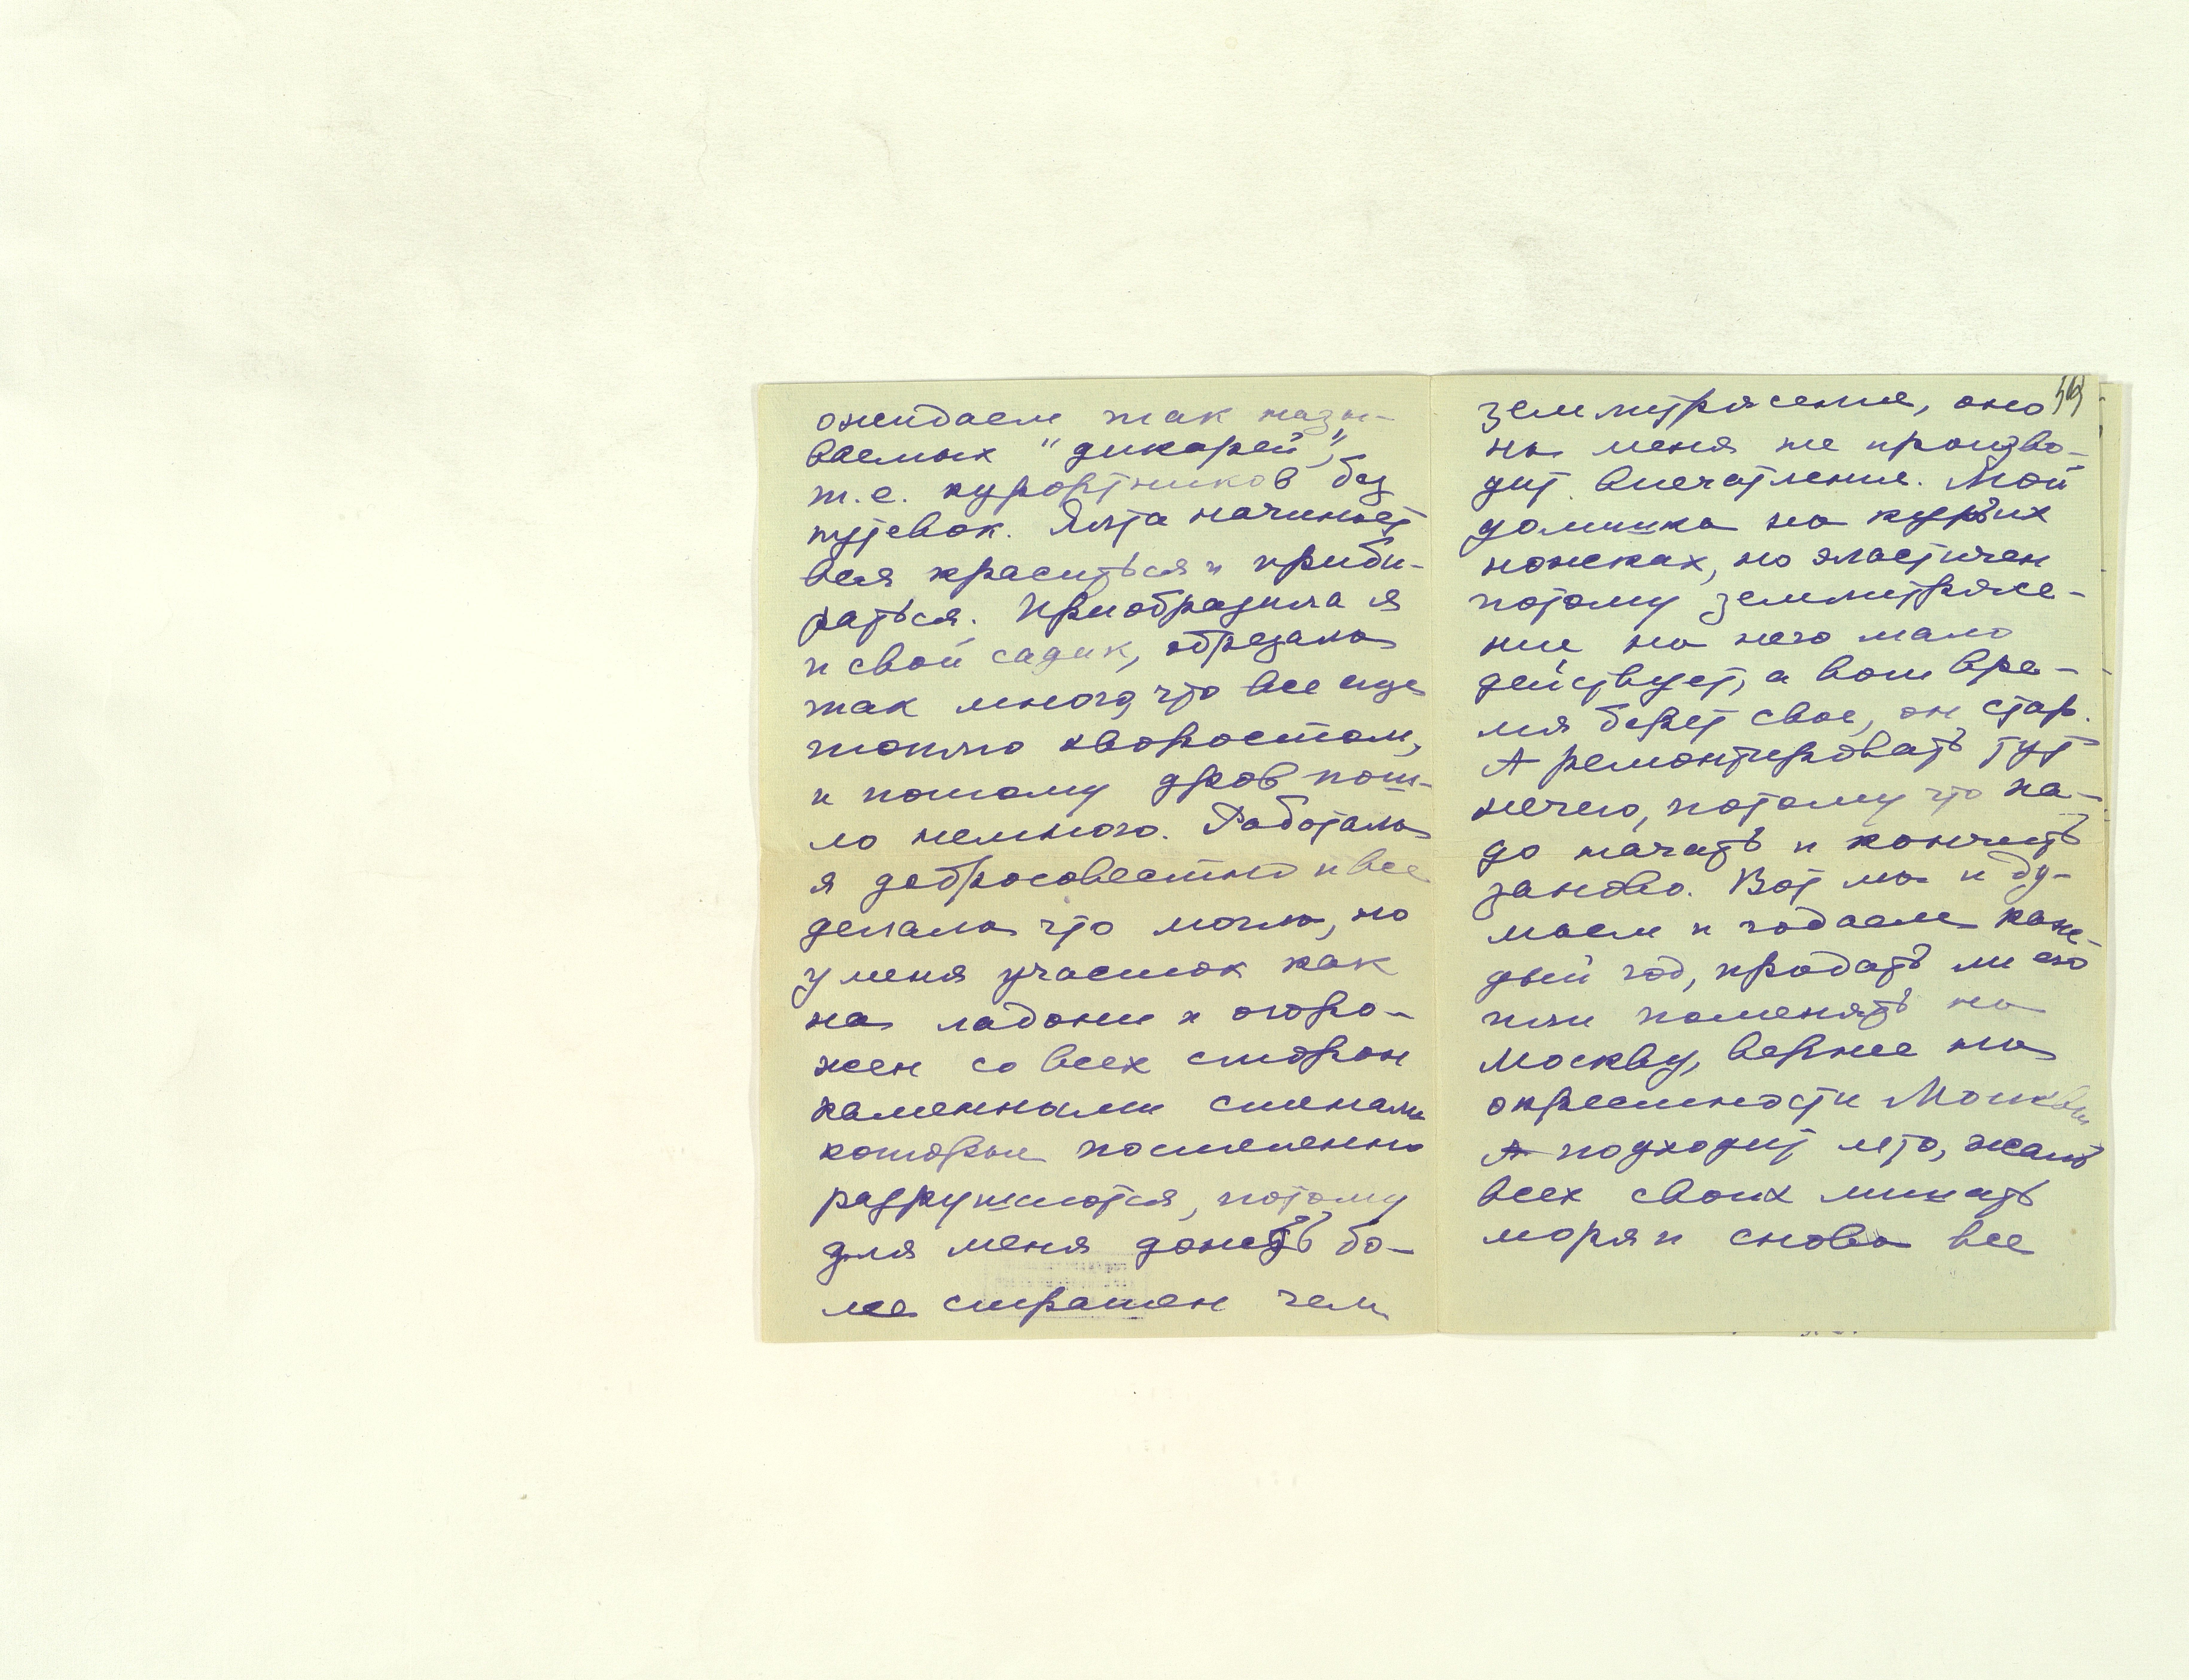 ожидаем так назы-
ваемых "дикарей",
т.е. курортников без
путевок. Ялта начинает
вся краситься и приби-
раться. Приобразила я
и свой садик, обрезала
так много, что все еще
топлю хворостом,
и потому дров пош-
ло немного. Работала
я добросовестно и все
делала что могла, но
у меня участок как
на ладони и огоро-
жен со всех сторон
каменными стенами
которые постепенно
разрушаются, потому
для меня дождь бо-
лее страшен чем
землитрясение, оно
на меня не произво-
дит впечатление. Мой
домишка на курьих
ножках, но эластичен
потому землитрясе-
ние на него мало
действует, а вот вре-
мя берет свое, он стар.
А ремонтировать тут
нечего, потому что на-
до начать и кончить
заново. Вот мы и ду-
маем и гадаем каж-
дый год, продать ли его
или поменять на
Москву, вернее на
окрестности Москвы
А подходит лето, жаль
всех своих лишать
моря и снова все